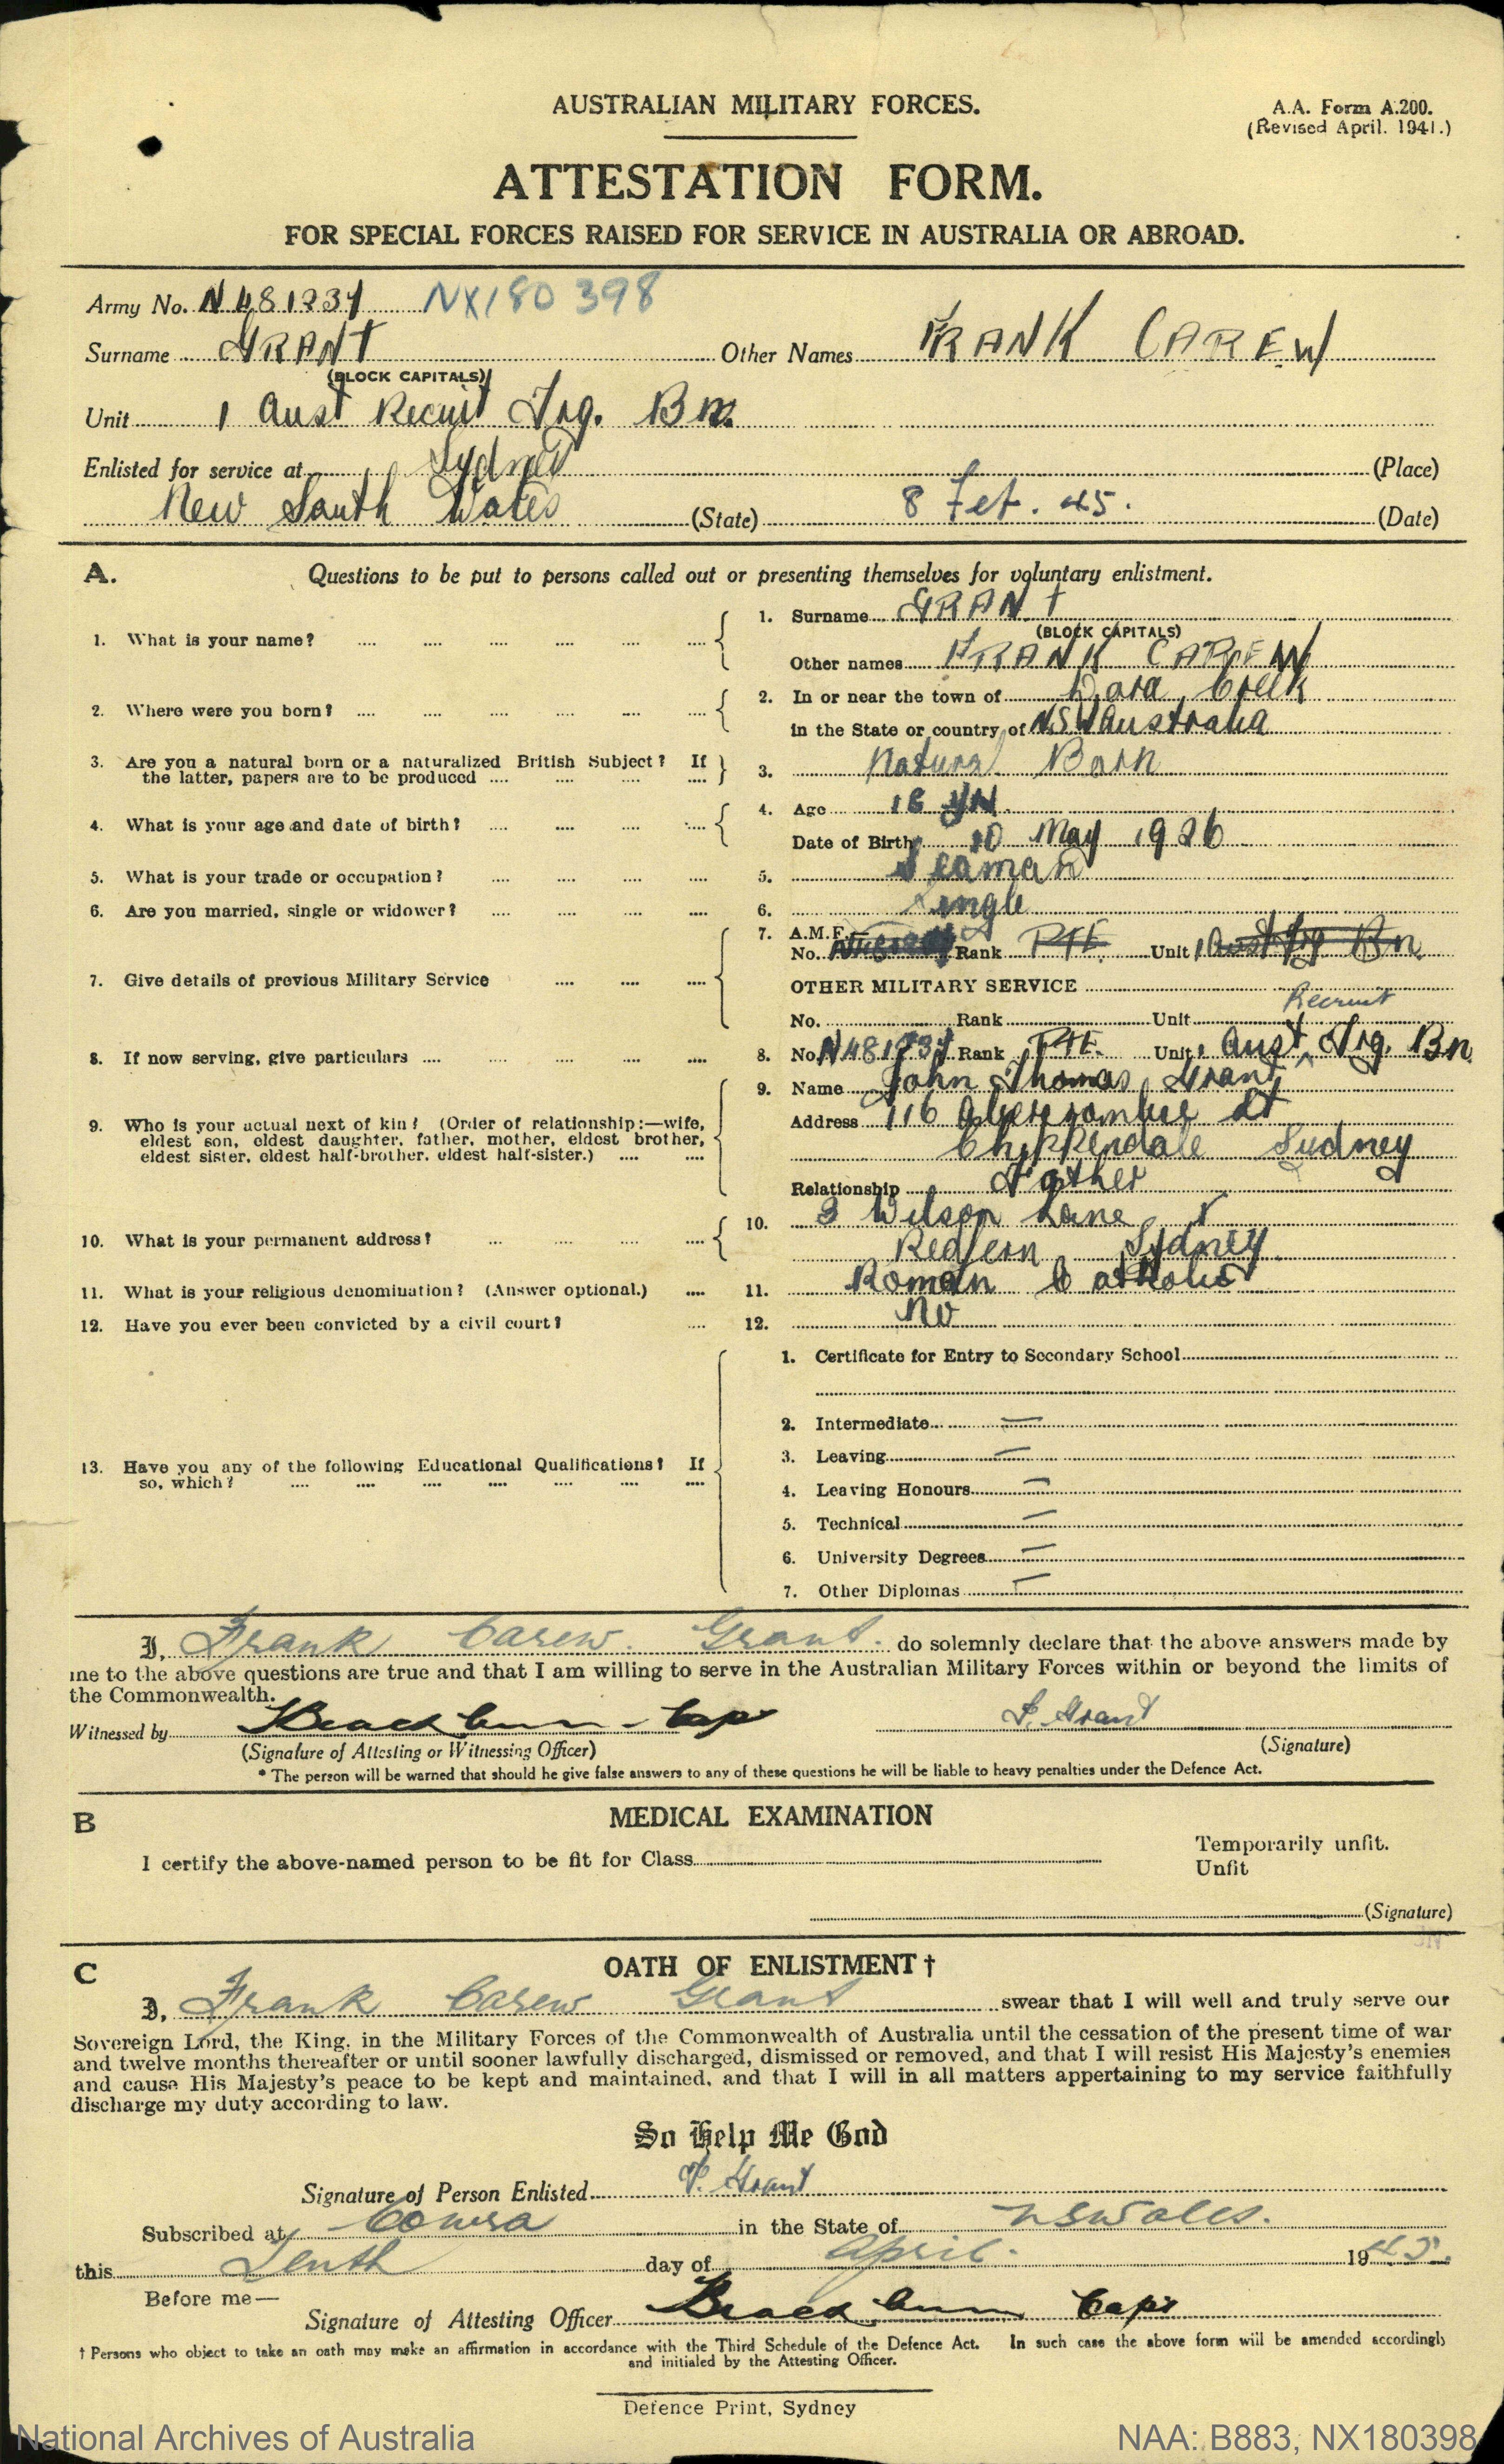 AUSTRALIAN MILITARY FORCES.
A.A. Form A.200.
(Revised April. 1941.)
ATTESTATION FORM.
FOR SPECIAL FORCES RAISED FOR SERVICE IN AUSTRALIA OR ABROAD.
Army No. N481237 NX180398
Surname GRANT Other Names FRANK CAREW
(BLOCK CAPITALS)
Unit 1 Aust Recruit Trg. Bn.
Enlisted for service at Sydney (Place)
New South Wales (State) 8 Feb. 45. (Date)
A. Questions to be put to persons called out or presenting themselves for voluntary enlistment.
1. What is your name? .... .... .... .... .... ....
1. Surname GRANT
(BLOCK CAPITALS)
Other names FRANK CAREW
2. Where were you born? .... .... .... .... .... ....
2. In or near the town of Creek
in the State or country of NSW Australia
3. Are you a natural born or a naturalized British Subject? If
the latter, papers are to be produced .... .... .... ....
3. Natural Born
4. What is your age and date of birth? .... .... .... ....
4. Age 18 yrs
Date of Birth 10 May 1926
5. What is your trade or occupation? .... .... .... ....
5. Seaman
6. Are you married, single or widower? .... .... .... ....
6. Single
7. Give details of previous Military Service .... .... ....
7. A.M.F.—
No. Rank PTE. Unit 1 Aust Trg Bn.
OTHER MILITARY SERVICE
No. Rank Unit
Recruit
8. If now serving, give particulars .... .... .... .... ....
8. No. N481237 Rank PTE. Unit 1 Aust Trg. Bn
9. Who is your actual next of kin? (Order of relationship:—wife,
eldest son, eldest daughter, father, mother, eldest brother,
eldest sister, eldest half-brother, eldest half-sister.) .... ....
9. Name John Thomas Grant
Address 116 Abercrombie St
Chippendale Sydney
Relationship Father
10. What is your permanent address? .... .... .... ....
10. 3 Wilson Lane
Redfern Sydney
11. What is your religious denomination? (Answer optional.) ....
11. Roman Catholic
12. Have you ever been convicted by a civil court? ....
12. No
13. Have you any of the following Educational Qualifications? If
so, which? .... .... .... .... .... .... ....
1. Certificate for Entry to Secondary School
2. Intermediate —
3. Leaving —
4. Leaving Honours —
5. Technical —
6. University Degrees —
7. Other Diplomas —
I, Frank Carew Grant do solemnly declare that the above answers made by
me to the above questions are true and that I am willing to serve in the Australian Military Forces within or beyond the limits of
the Commonwealth.
Witnessed by Capt F. Grant
(Signature of Attesting or Witnessing Officer) (Signature)
* The person will be warned that should he give false answers to any of these questions he will be liable to heavy penalties under the Defence Act.
B MEDICAL EXAMINATION
I certify the above-named person to be fit for Class
Temporarily unfit.
Unfit
(Signature)
C OATH OF ENLISTMENT †
I, Frank Carew Grant swear that I will well and truly serve our
Sovereign Lord, the King, in the Military Forces of the Commonwealth of Australia until the cessation of the present time of war
and twelve months thereafter or until sooner lawfully discharged, dismissed or removed, and that I will resist His Majesty's enemies
and cause His Majesty's peace to be kept and maintained, and that I will in all matters appertaining to my service faithfully
discharge my duty according to law.
So Help Me God
Signature of Person Enlisted F. Grant
Subscribed at Cowra in the State of NSWales.
this Tenth day of April 1945.
Before me—
Signature of Attesting Officer Capt
† Persons who object to take an oath may make an affirmation in accordance with the Third Schedule of the Defence Act. In such case the above form will be amended accordingly
and initialed by the Attesting Officer.
Defence Print, Sydney
National Archives of Australia NAA: B883, NX180398